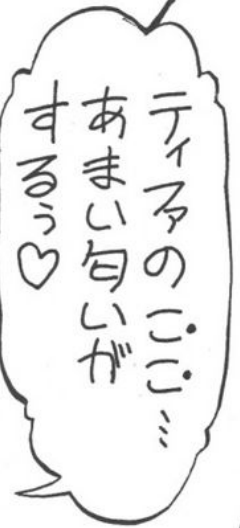 ティファのここ…
あまい匂いが
するぅ♡